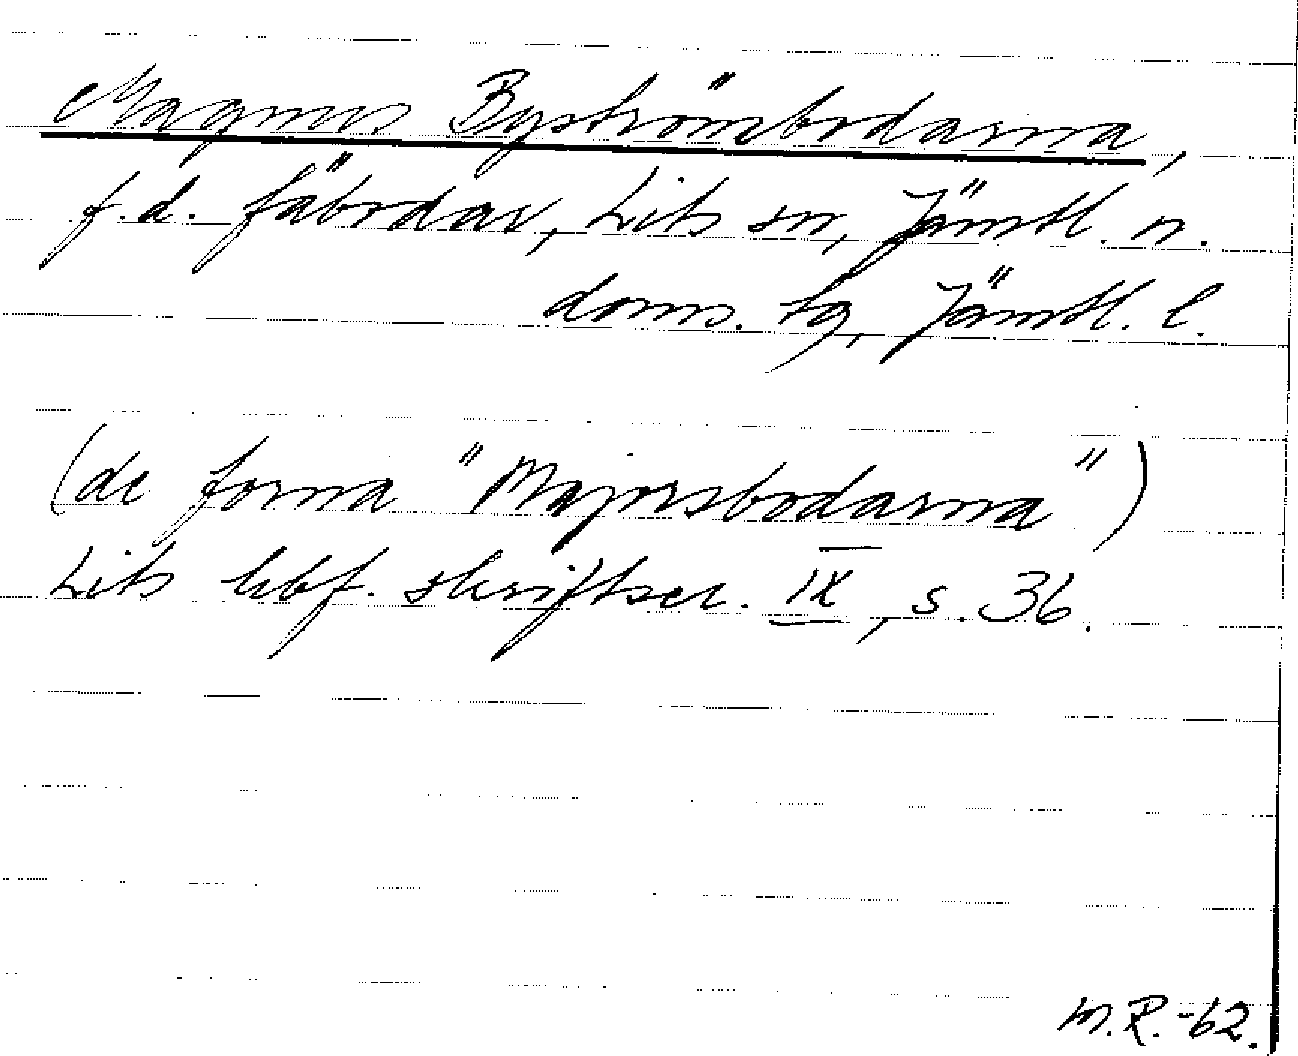 Magnus Byströmbodarna,
f.d. fäbodar, Lits sn, Jämtl. n.
doms. tg, Jämtl. l.
(de forna "Majorsbodarna")
Lits hbf. skriftser. IX, s. 36.
M.R. -62.